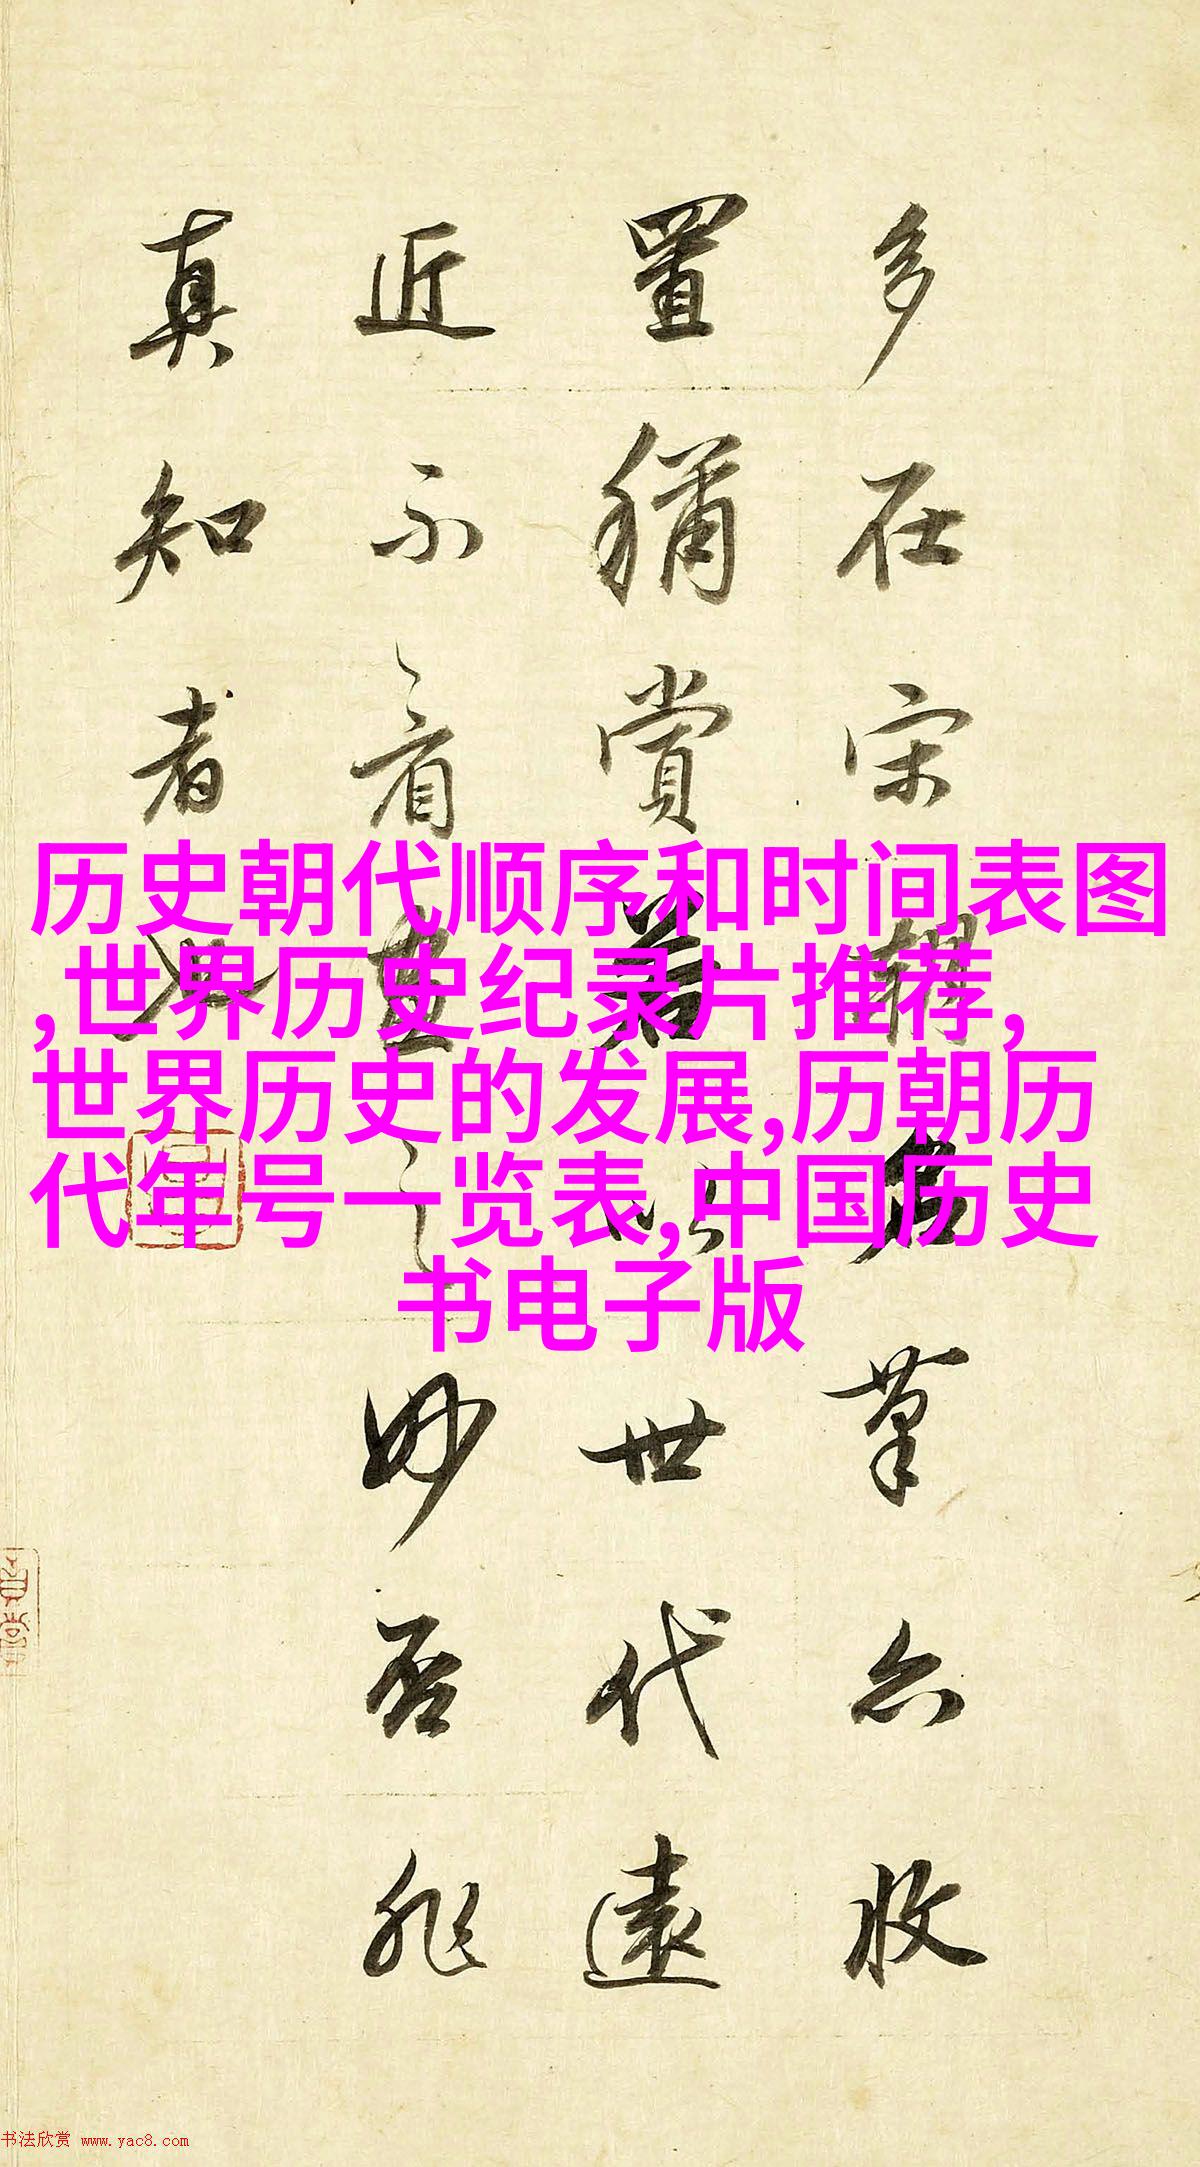 多在宋輞名筆亦收
置稱賞若以世代遠
近不看畫之妙否非
真知者也
历史朝代顺序和时间表图
,世界历史纪录片推荐,
世界历史的发展,历朝历
代年号一览表,中国历史
书电子版
书法欣赏 www.yac8.com